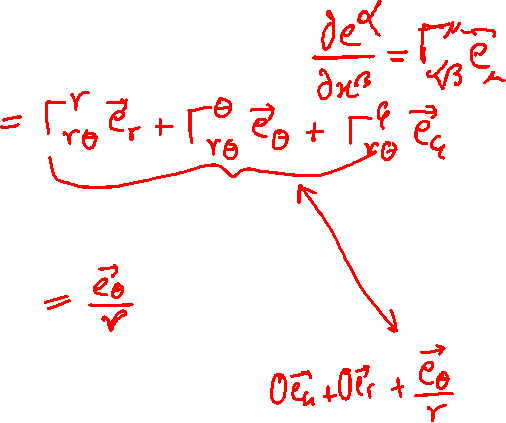 ∂e^α/∂x^β = Γ^μ_{αβ} e⃗_μ
= Γ^r_{rθ} e⃗_r + Γ^θ_{rθ} e⃗_θ + Γ^φ_{rθ} e⃗_φ
= e⃗_θ/r
0e⃗_φ + 0e⃗_r + e⃗_θ/r